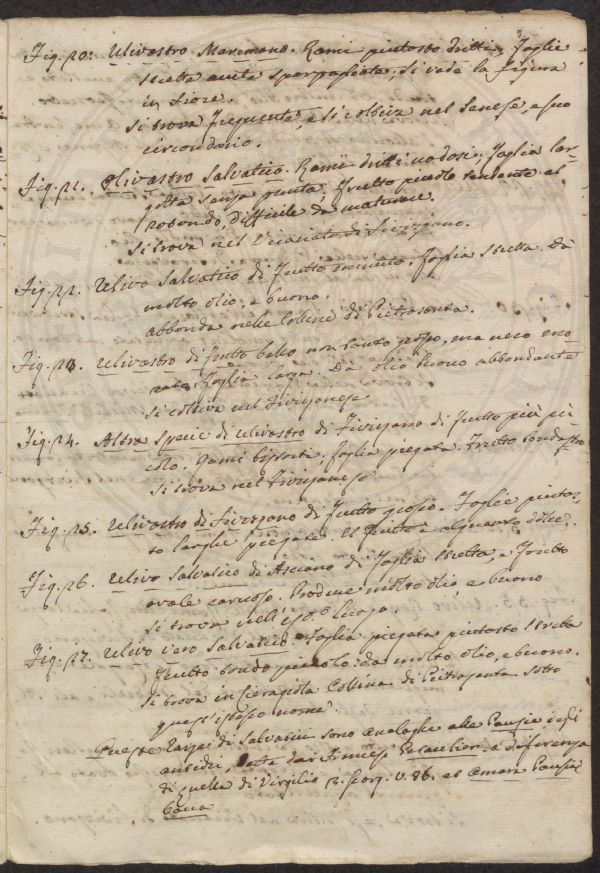 Fig. 20: Ulivastro Maremano. Rami piutosto dritti, Foglie
stretta auta sparpagliata, si vede la Figura
in fiore.
Si trova frequente, e si coltiva nel Senese, e suo
circondario.
Fig. 21. Olivastro Salvatico. Rami dritti nodosi, Foglia lar-
ghetta sanza punta. Frutto picolo tendente al
rotondo, difficile da maturare.
Si trova nel Vicariato di Fivizzano.
Fig. 22. Ulivo Salvatico di frutto minuto. Foglia stretta. Dà
molto olio, e buono.
abbonda nelle Colline di Pietrasanta.
Fig. 23. Ulivastro di frutto bello non tanto grosso, ma nero mo-
rato, foglia larga. Dà olio buono abbondante
Si coltiva nel Fivizanese
Fig. 24. Altra Specie di Ulivastro di Fivizano di frutto più pi-
colo. Rami bistorti, foglia piegata. Frutto tondastro
Si trova nel Fivizanese
Fig. 25. Ulivastro di Fivizano di frutto grosso. Foglie piutos-
to larghe piegate. Il frutto è alquanto dolce.
Fig. 26. Ulivo Salvatico di Asciano di foglia stretta, e Frutto
ovale carnoso. Produce molto olio, e buono
Si trova nell'isto Luogo.
Fig. 27. Ulivo vero Salvatico. Foglia piegata piutosto stretta
frutto tondo picolo: dà molto olio, e buono.
Si trova in Ceragiola Collina di Pietrasanta sotto
quest'istesso nome.
Queste razze di Salvatici sono analoghe alle Pausie
antidei, dai a diferenza
di quella di Virgilio 2. Georg. v. 86. et amara Pausia
Bacca